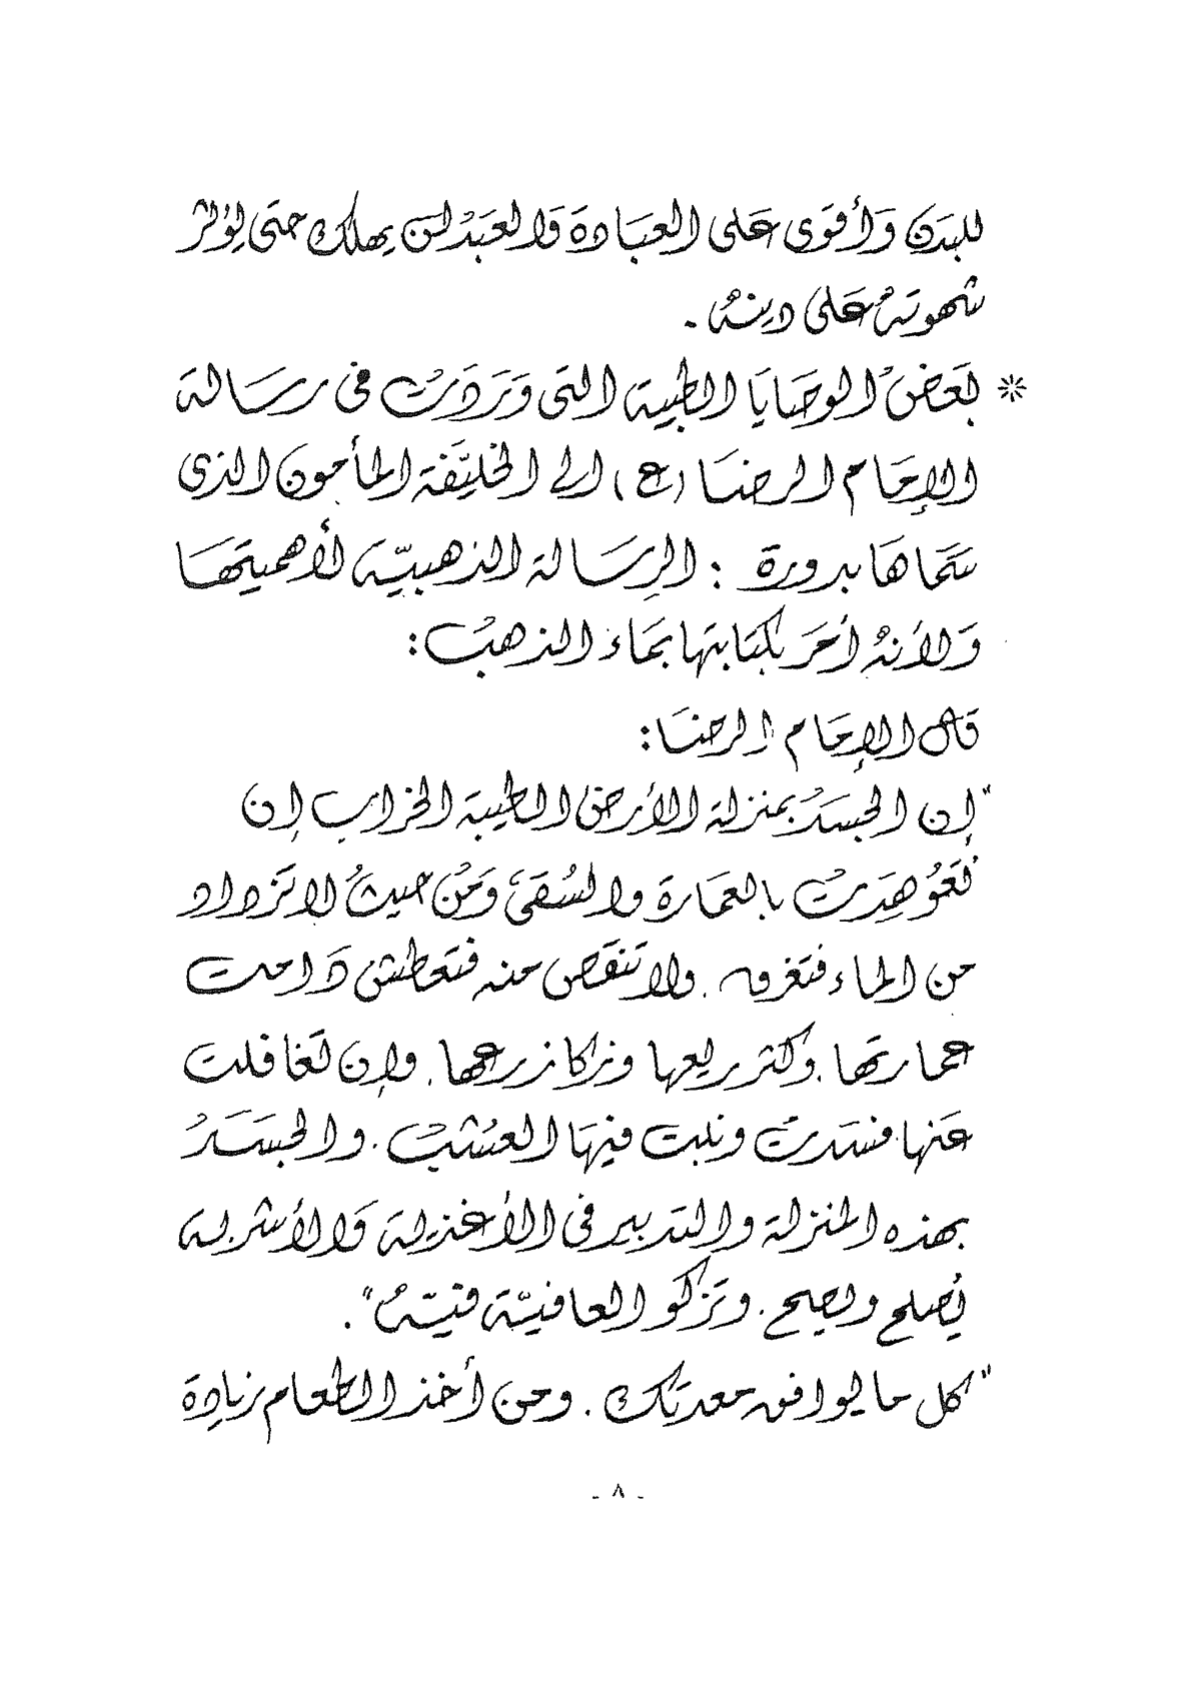 للبدَن وَأقوَى عَلى العبَادة وَالعَبَدُ لن يهلك حتى يُؤثر
شهوتهُ عَلى دينهُ .
* بَعَضْ الوصَايَا الطبية التى وَرَدَتْ فى رسَالة
الإمَام الرضَا (ع) الى الخليفَة المأمون الذى
سَمَاهَا بدورة : الرسَالة الذهبيّة لأهميتهَا
وَلأنهُ أمَر بكتَابتها بمَاء الذهبْ :
قال الإمَام الرضَا :
"إن الجسَدُ بمنزلة الأرض الطيبة الخراب إن
تُعُوهِدَتْ بالعمَارة والسُقىَ وَمْن حيثُ لا تَزداد
من الماء فتغرق . ولا تنقَص منه فتَعطش دَامت
عمارتها . وكثر ريعها وزكا زرعها . وإن تَغافلت
عَنها فسَدَتْ ونبت فيهَا العُشبْ . والجسَدُ
بهذه المنزلة والتدبير فى الأغذية وَالأشربة
يُصلح ويصح . وتَزكو العافيّة فيّهُ" .
"كل ما يوافق معدتك . ومن أخذ الطعام زيادة
- ٨ -